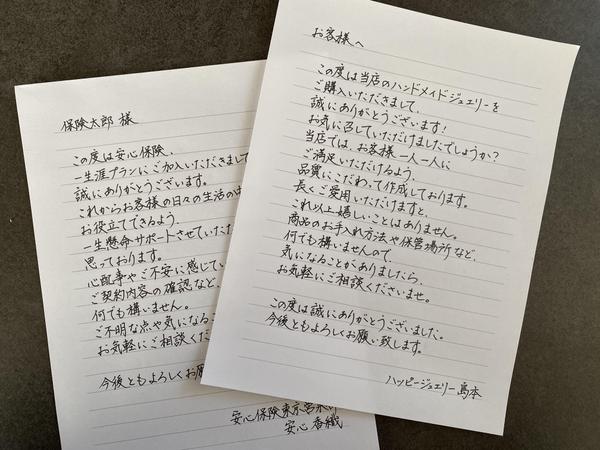 保険太郎 様
この度は安心保険、
一生涯プランにご加入いただきまして
誠にありがとうございます。
これからお客様の日々の生活の
お役立てできるよう、
一生懸命サポートさせていた
思っております。
心配事やご不安に感じてい
ご契約内容の確認など、
何でも構いません。
ご不明な点や気になるこ
お気軽にご相談くだ
今後ともよろしくお願
安心保険東京
安心 香織
お客様へ
この度は当店のハンドメイドジュエリーを
ご購入いただきまして、
誠にありがとうございます!
お気に召していただけましたでしょうか?
当店では、お客様一人一人に
ご満足いただけるよう、
品質にこだわって作成しております。
長くご愛用いただけますと、
これ以上嬉しいことはありません。
商品のお手入れ方法や保管場所など、
何でも構いませんので、
気になることがありましたら、
お気軽にご相談くださいませ。
この度は誠にありがとうございました。
今後ともよろしくお願い致します。
ハッピージュエリー島本